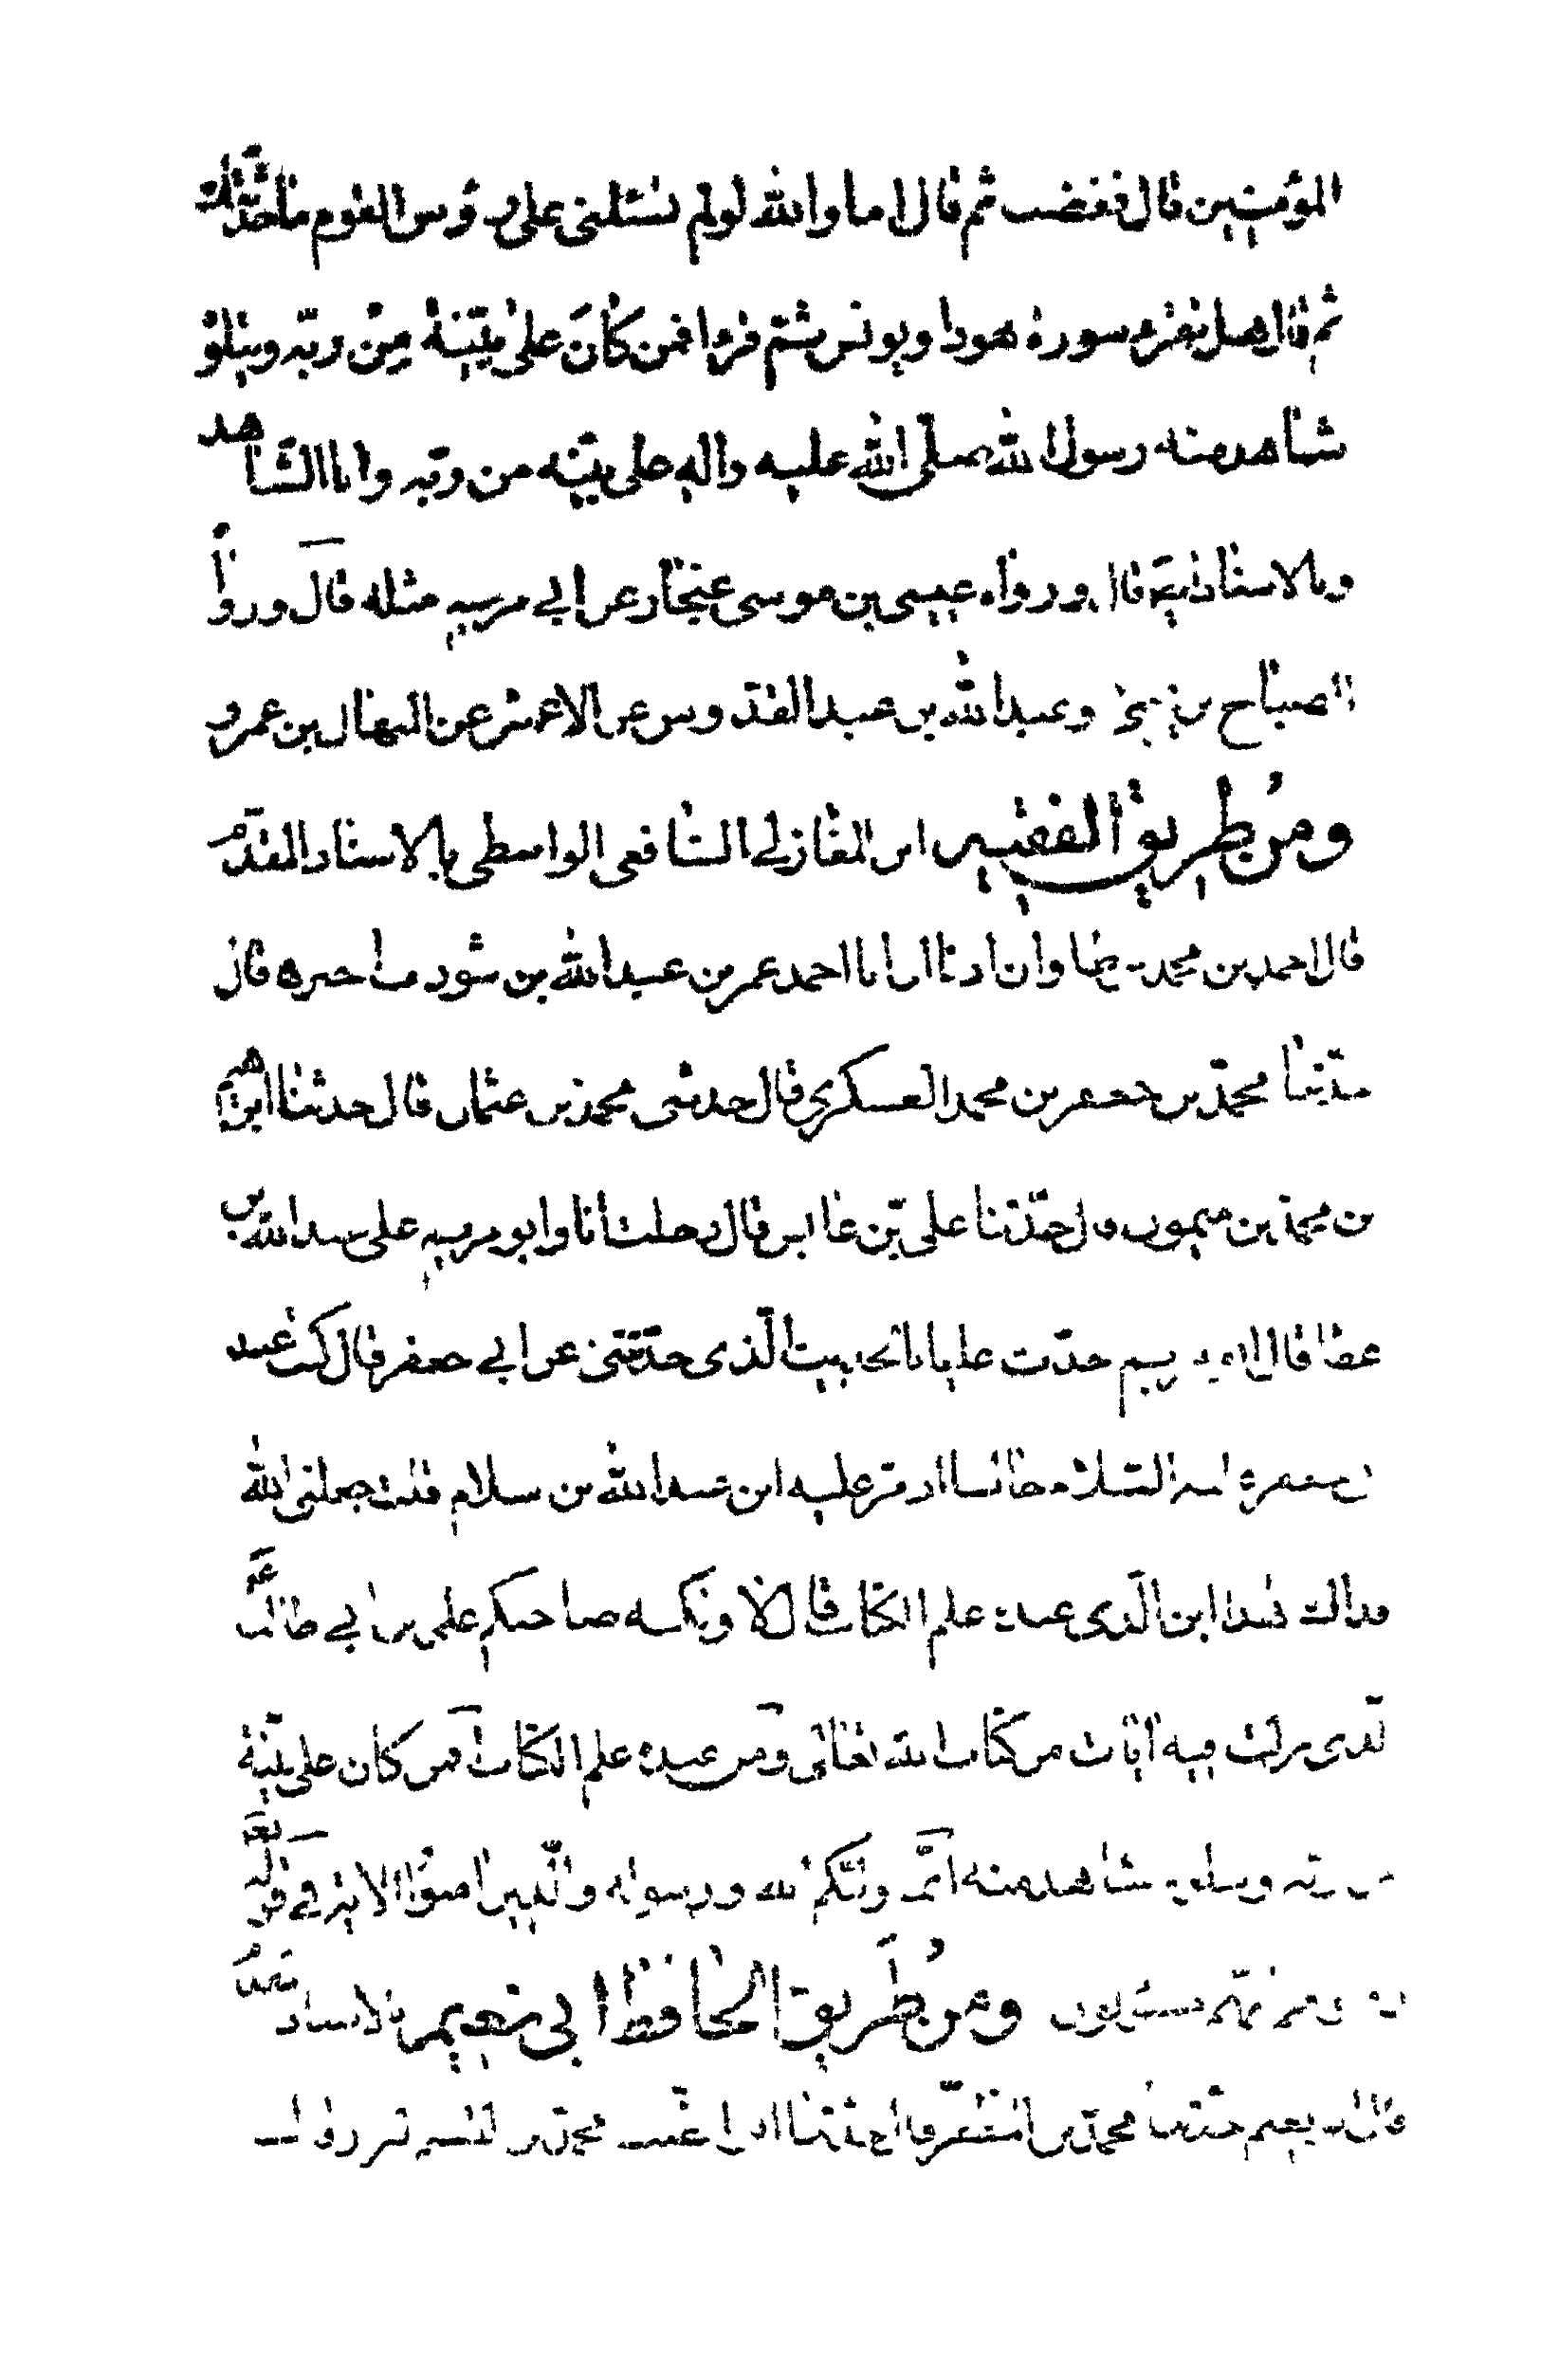 المؤمنين قال فغضب ثم قال اما والله لو لم تسئلنى على رؤس القوم ما حدّثتك
ثم قال هل تقرء سورة هودا ويونس ثم قرء افمن كانَ على بيّنة مِن ربّه ويتلوُ
شاهد منه رسول الله صلّى الله عليه واله على بيّنه من ربّه وانا الشاهد
وبالاسناد قال ورواه عيسى بن موسى غنجار عن ابي مريم مثله قال ورواه
الصباح بن يحيى وعبد الله بن عبد القدّوس عن الاعمش عن المنهال بن عمرو
ومن طريق الفقيه ابن المغازلي الشافعى الواسطى بالاسناد المقدّم
قال احمد بن محمد بن طاوان اذنا ان ابا احمد عمر بن عبد الله بن شوذب اخبره قال
حدّثنا محمّد بن جعفر بن محمد العسكري قال حدثنى محمد بن عثمان قال حدثنا ابراهيم
بن محمد بن ميمون قال حدّثنا على بن عابس قال دخلت انا وابو مريم على عبد الله بن
عطا قال ابو مريم حدّث عليا بالحديث الّذى حدّثتنى عن ابي جعفر قال كنت عند
ابي جعفر عليه السّلام جالسا اذ مرّ عليه ابن عبد الله بن سلام قلت جعلنى الله
فداك هذا ابن الّذى عنده علم الكتاب قال لا ولكنه صاحبكم على بن ابي طالب عم
الذى نزلت فيه آيات من كتاب الله تعالى ومن عنده علم الكتاب افمن كان على بيّنة
من ربّه ويتلوه شاهد منه انّما وليّكم الله ورسوله والّذين امنوا الاية في قوله تعه
وقفوهم انهّم مسئولون ومن طريق الحافظ ابي نعيم بالاسناد
قال ابو نعيم حدّثنا محمّد بن المظفّر قال حدّثنا